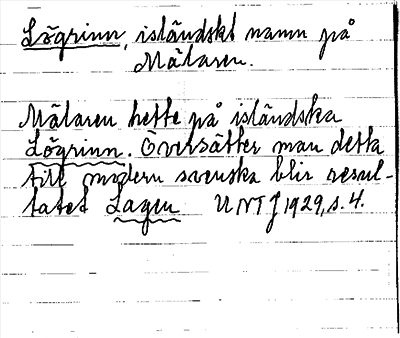 Lögrinn, isländskt namn på
Mälaren.
Mälaren hette på isländska
Lögrinn. Översätter man detta
till modern svenska blir resul-
tatet Lagen UNTJ 1929, s. 4.